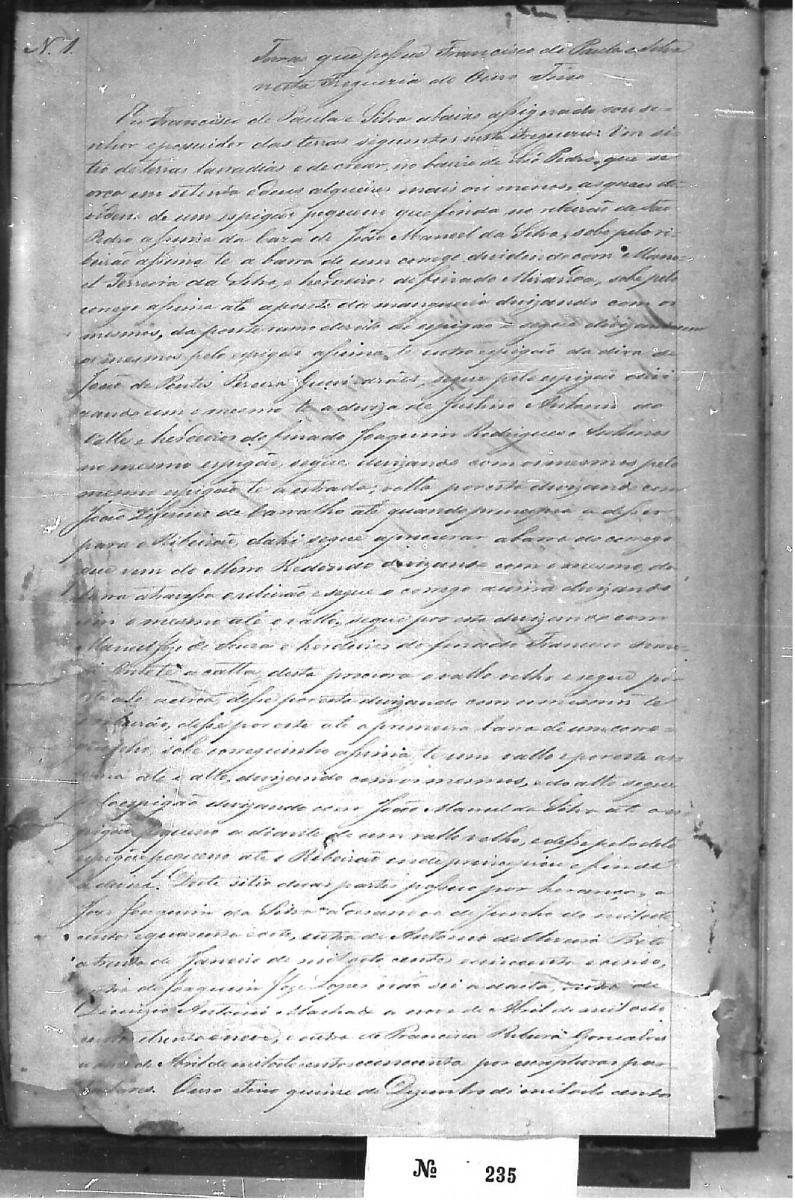 N. 1.
Terras que possue Francisco de Paula e Silva
nesta Freguezia de Ouro Fino
Eu Francisco de Paula e Silva abaixo assignado sou se-
nhor e possuidor das terras seguintes nesta Freguezia: Um si-
tio de terras lavradias e de crear, no bairro de São Pedro, que se
orça em setenta e dous alqueires mais ou menos, as quaes di-
videm de um espigão pequeno que finda no ribeirão de São
Pedro assima da caza de João Manoel da Silva, sobe pelo ri-
beirão assima te a barra de um corrego dividindo com Mano-
el Ferreira da Silva, e herdeiros do finado Miranda, sobe pelo
corrego assima até a ponte da mangueira divizando com os
mesmos, da ponte rumo direito ao espigão e segue divizando com
os mesmos pelo espigão assima, te outro espigão da diviza de
João de Pontes Pereira Guimarães, segue pelo espigão divi-
zando com o mesmo te a diviza de Justino e Antonio do
Valle e herdeiros do finado Joaquim Rodrigues
no mesmo espigão, segue divizando com os mesmos pelo
mesmo espigão te a estrada; volta por esta divizando com
João de Carvalho até quando principia a descer
para o Ribeirão, dahi segue a procurar a barra do corrego
que vem do Morro Redondo divizando com o mesmo, da
barra atravessa o ribeirão e segue o corrego acima divizando
com o mesmo até o vallo, segue por este divizando com
Manoel Joze de Souza e herdeiros do finado Francisco
te a vallo, desta procura o vallo velho e segue por
este até a cerca, desse por esta divizando com os mesmos te
o ribeirão, desse por este até a primeira barra de um corre-
guinho, sobe correguinho assima, te um vallo e por este as-
sima até o alto, divizando com os mesmos, e do alto segue
pelo espigão divizando com João Manoel da Silva até o es-
pigão pequeno a diante de um vallo velho, e desse pelo dito
espigão pequeno até o Ribeirão onde principiou e finda
a diviza. Deste sitio duas partes possuo por herança, e
Joze Joaquim da Silva a de Junho de mil oito
centos e quarenta e oito, outra de Antonio de
a trinta de Janeiro de mil oito centos e cincoenta e cinco,
outra de Joaquim Joze Lopes não sei a dacta, outra de
Antonio Machado a nove de Abril de mil oito
centos e trinta e nove, e outra de Francisca Ribeira Gonçalves
a de Abril de mil oito centos e cincoenta por escripturas par-
ticulares. Ouro Fino quinze de Dezembro de mil oito centos
Nº 235